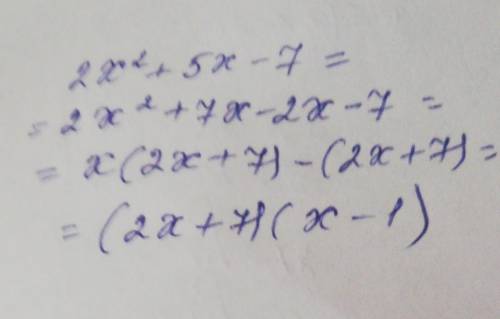 2x² + 5x - 7 =
= 2x² + 7x - 2x - 7 =
= x(2x + 7) - (2x + 7) =
= (2x + 7)(x - 1)